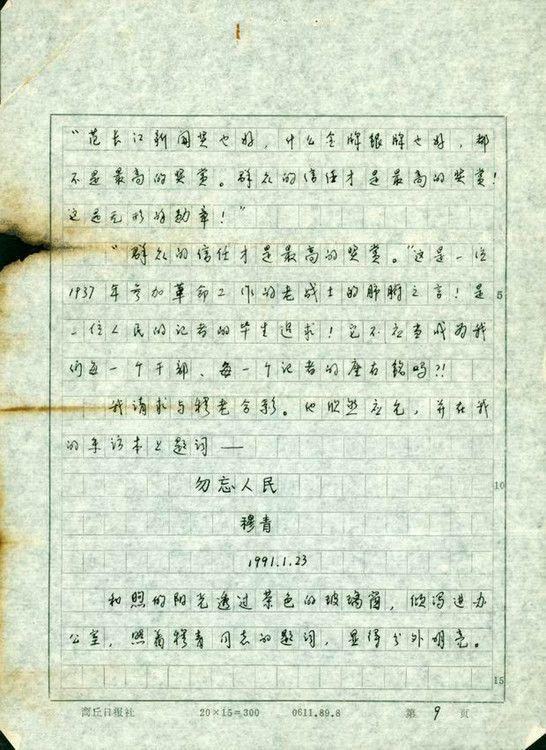 “范长江新闻奖也好，什么金牌银牌也好，都
不是最高的奖赏。群众的信任才是最高的奖赏！
这是无形的勋章！”
“群众的信任才是最高的奖赏。”这是一位
1937年参加革命工作的老战士的肺腑之言！是
一位人民的记者的毕生追求！它不应当成为我
们每一个干部、每一个记者的座右铭吗？！
5
我请求与穆老合影。他欣然应允，并在我
的采访本上题词——
勿忘人民
10
穆青
1991.1.23
和煦的阳光透过茶色的玻璃窗，倾泻进办
公室，照着穆青同志的题词，显得分外明亮。
15
商丘日报社 20×15=300 0611.89.8 第 9 页